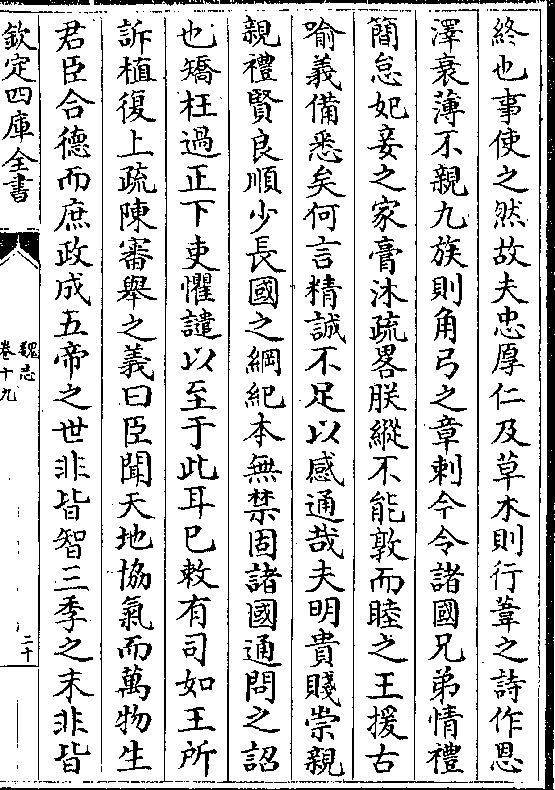 終也事使之然故夫忠厚仁及草木則行葦之詩作恩
澤衰薄不親九族則角弓之章刺今令諸國兄弟情禮
簡怠妃妾之家膏沐疏畧朕縱不能敦而睦之王援古
喻義備悉矣何言精誠不足以感通哉夫明貴賤崇親
親禮賢良順少長國之綱紀本無禁固諸國通問之詔
也矯枉過正下吏懼譴以至于此耳已敕有司如王所
訴植復上疏陳審舉之義曰臣聞天地協氣而萬物生
君臣合德而庶政成五帝之世非皆智三季之末非皆
欽定四庫全書
魏志
卷十九
二十